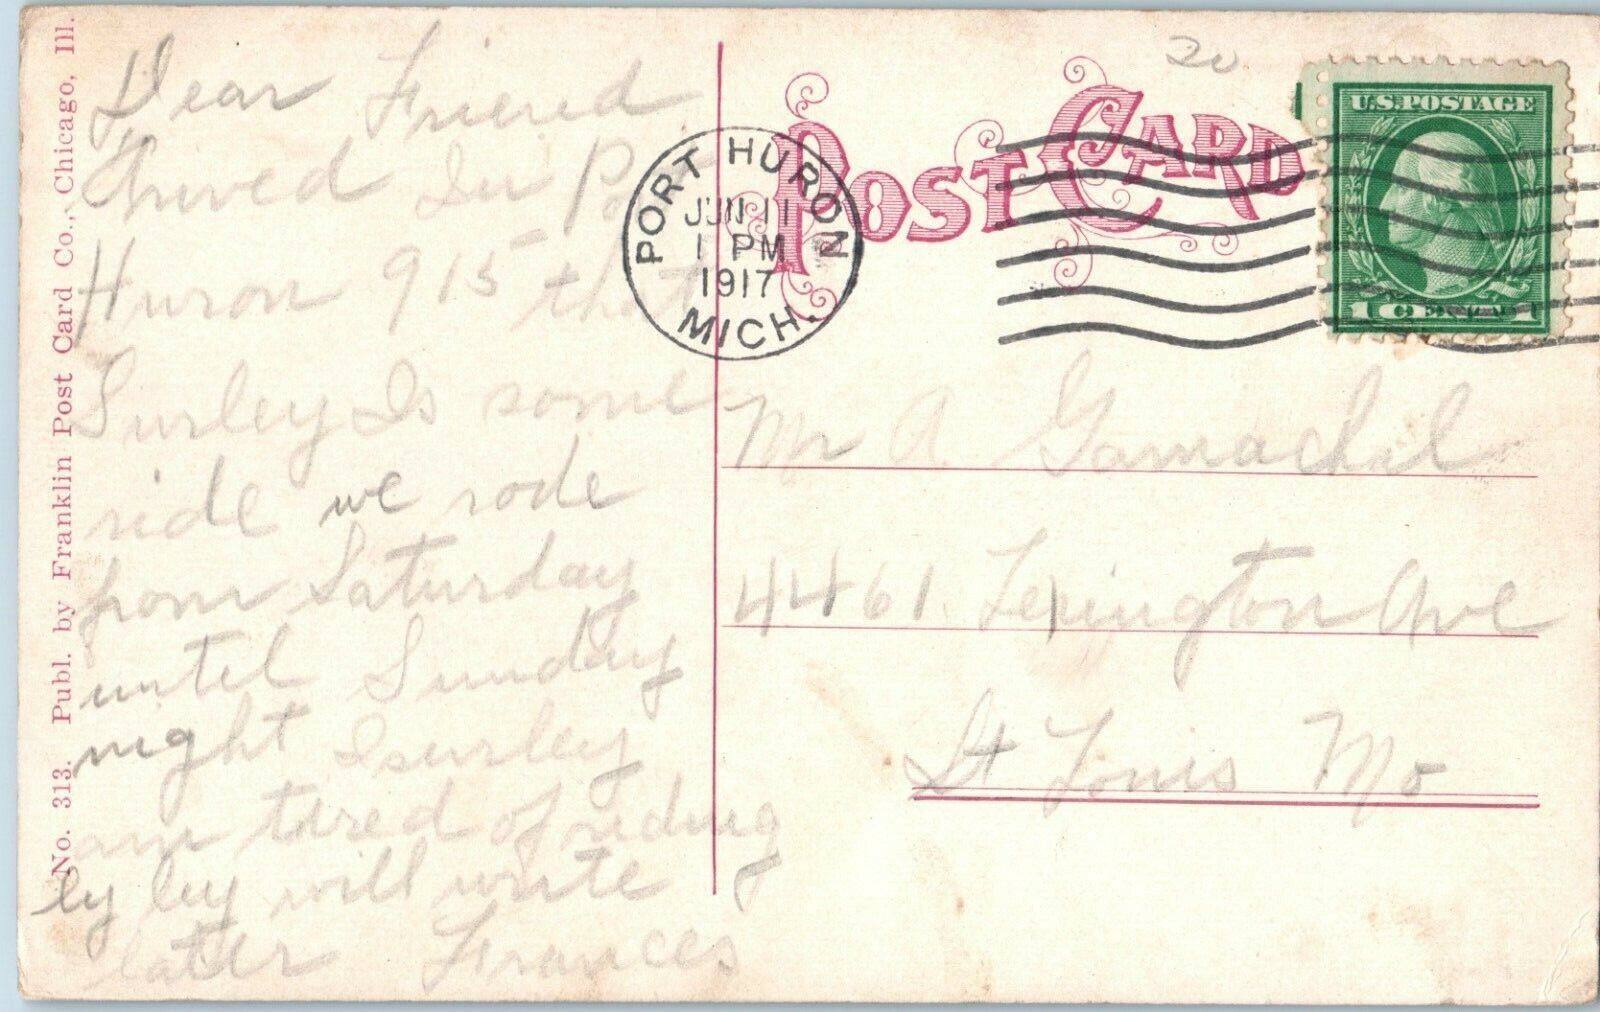 No. 313. Publ. by Franklin Post Card Co., Chicago, Ill.
Dear Friend
in
Huron 915 that
Surley Is some
ride we rode
from Saturday
until Sunday
night I surley
am tired of riding
by by will write
later Frances
POST CARD
20
PORT HURON
JUN 11
1 PM
1917
MICH.
U.S. POSTAGE
1 CENT 1
Mr A
4461 Lexington Ave
St Louis Mo